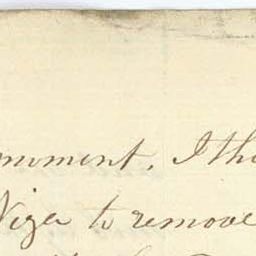 moment, I tho
Niger to remove